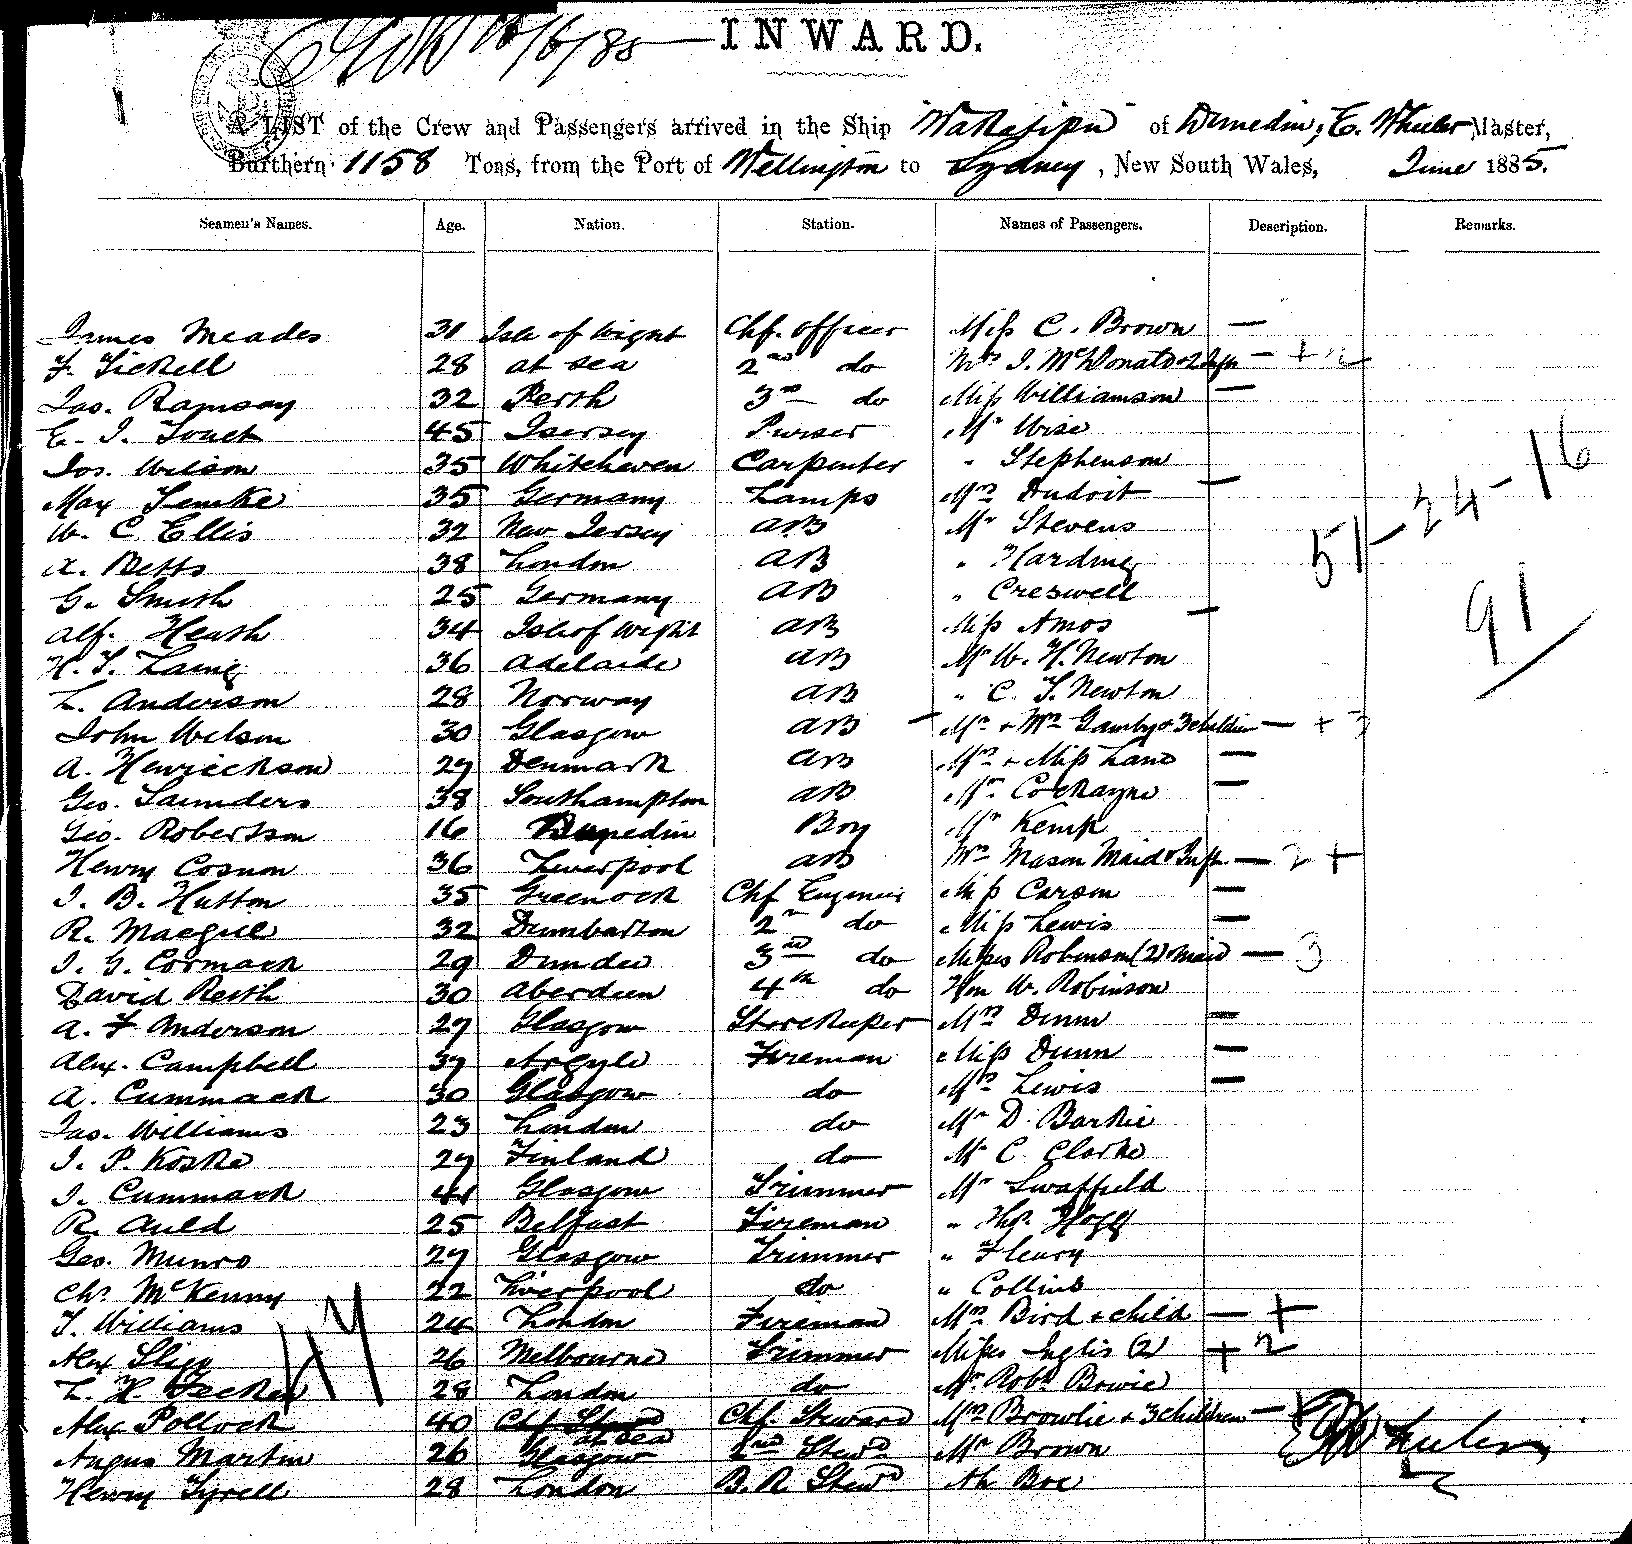 10/6/85 — INWARD.
A LIST of the Crew and Passengers arrived in the Ship "Wakatipu" of Dunedin, E. Wheeler Master,
Burthern 1158 Tons, from the Port of Wellington to Sydney, New South Wales, June 1885.
Seamen's Names. Age. Nation. Station. Names of Passengers. Description. Remarks.
James Meades 31 Isle of Wight Chf. Officer Miss C. Brown —
F. Tickell 28 at sea 2nd do Mrs J. McDonald & 2 — + 2
Jas. Ramsay 32 Perth 3rd do Miss Williamson —
E. J. 45 Jersey Purser Mr Wise
Jos. Wilson 35 Whitehaven Carpenter " Stephenson
Max Lemke 35 Germany Lamps Mrs Dudoit —
W. C. Ellis 32 New Jersey AB Mr Stevens
A. Betts 38 London AB " Harding
G. Smith 25 Germany AB " Creswell
Alf. Heath 34 Isle of Wight AB Miss Amos —
H. T. Laing 36 Adelaide AB Mr W. H. Newton
L. Anderson 28 Norway AB " C. T. Newton
John Wilson 30 Glasgow AB — Mr & Mrs Gamby & 3 children — + 3
A. Henrickson 27 Denmark AB Mrs & Miss Lane —
Geo. Saunders 38 Southampton AB Mrs Cockayne —
Geo. Robertson 16 Dunedin Boy Mr Kemp
Henry Cosnon 36 Liverpool AB Mrs Mason Maid & Inft — 2 +
J. B. Hutton 35 Greenock Chf Engineer Miss Carson —
R. Macgill 32 Dumbarton 2nd do Miss Lewis —
J. G. Cormack 29 Dundee 3rd do Misses Robinson (2) & Maid — 3
David Reith 30 Aberdeen 4th do Hon W. Robinson
A. F Anderson 27 Glasgow Storekeeper Mrs Dunn —
Alex. Campbell 37 Argyle Fireman Miss Dunn —
A. Cummack 30 Glasgow do Mrs Lewis —
Jas. Williams 23 London do Mr D. Barkie
J. P. Koske 27 Finland do Mr C. Clarke
J. Cummack 41 Glasgow Trimmer Mr Swaffield
R. Auld 25 Belfast Fireman " Hogg
Geo. Munro 27 Glasgow Trimmer " Fleury
Chs. McKenny 22 Liverpool do " Collins
T. Williams 24 London Fireman Mrs Bird & child — +
Alex Sligo 26 Melbourne Trimmer Misses Inglis (2) + 2
L. H. 28 London do Mr Robt Bowie
Alex Pollock 40 Chf Steward Mrs Brownlie & 3 children —
Angus Martin 26 Glasgow 2nd Stewd Mr Brown
Henry Tyrell 28 London B. R. Stewd Ah Boe
51 - 24 - 16
91